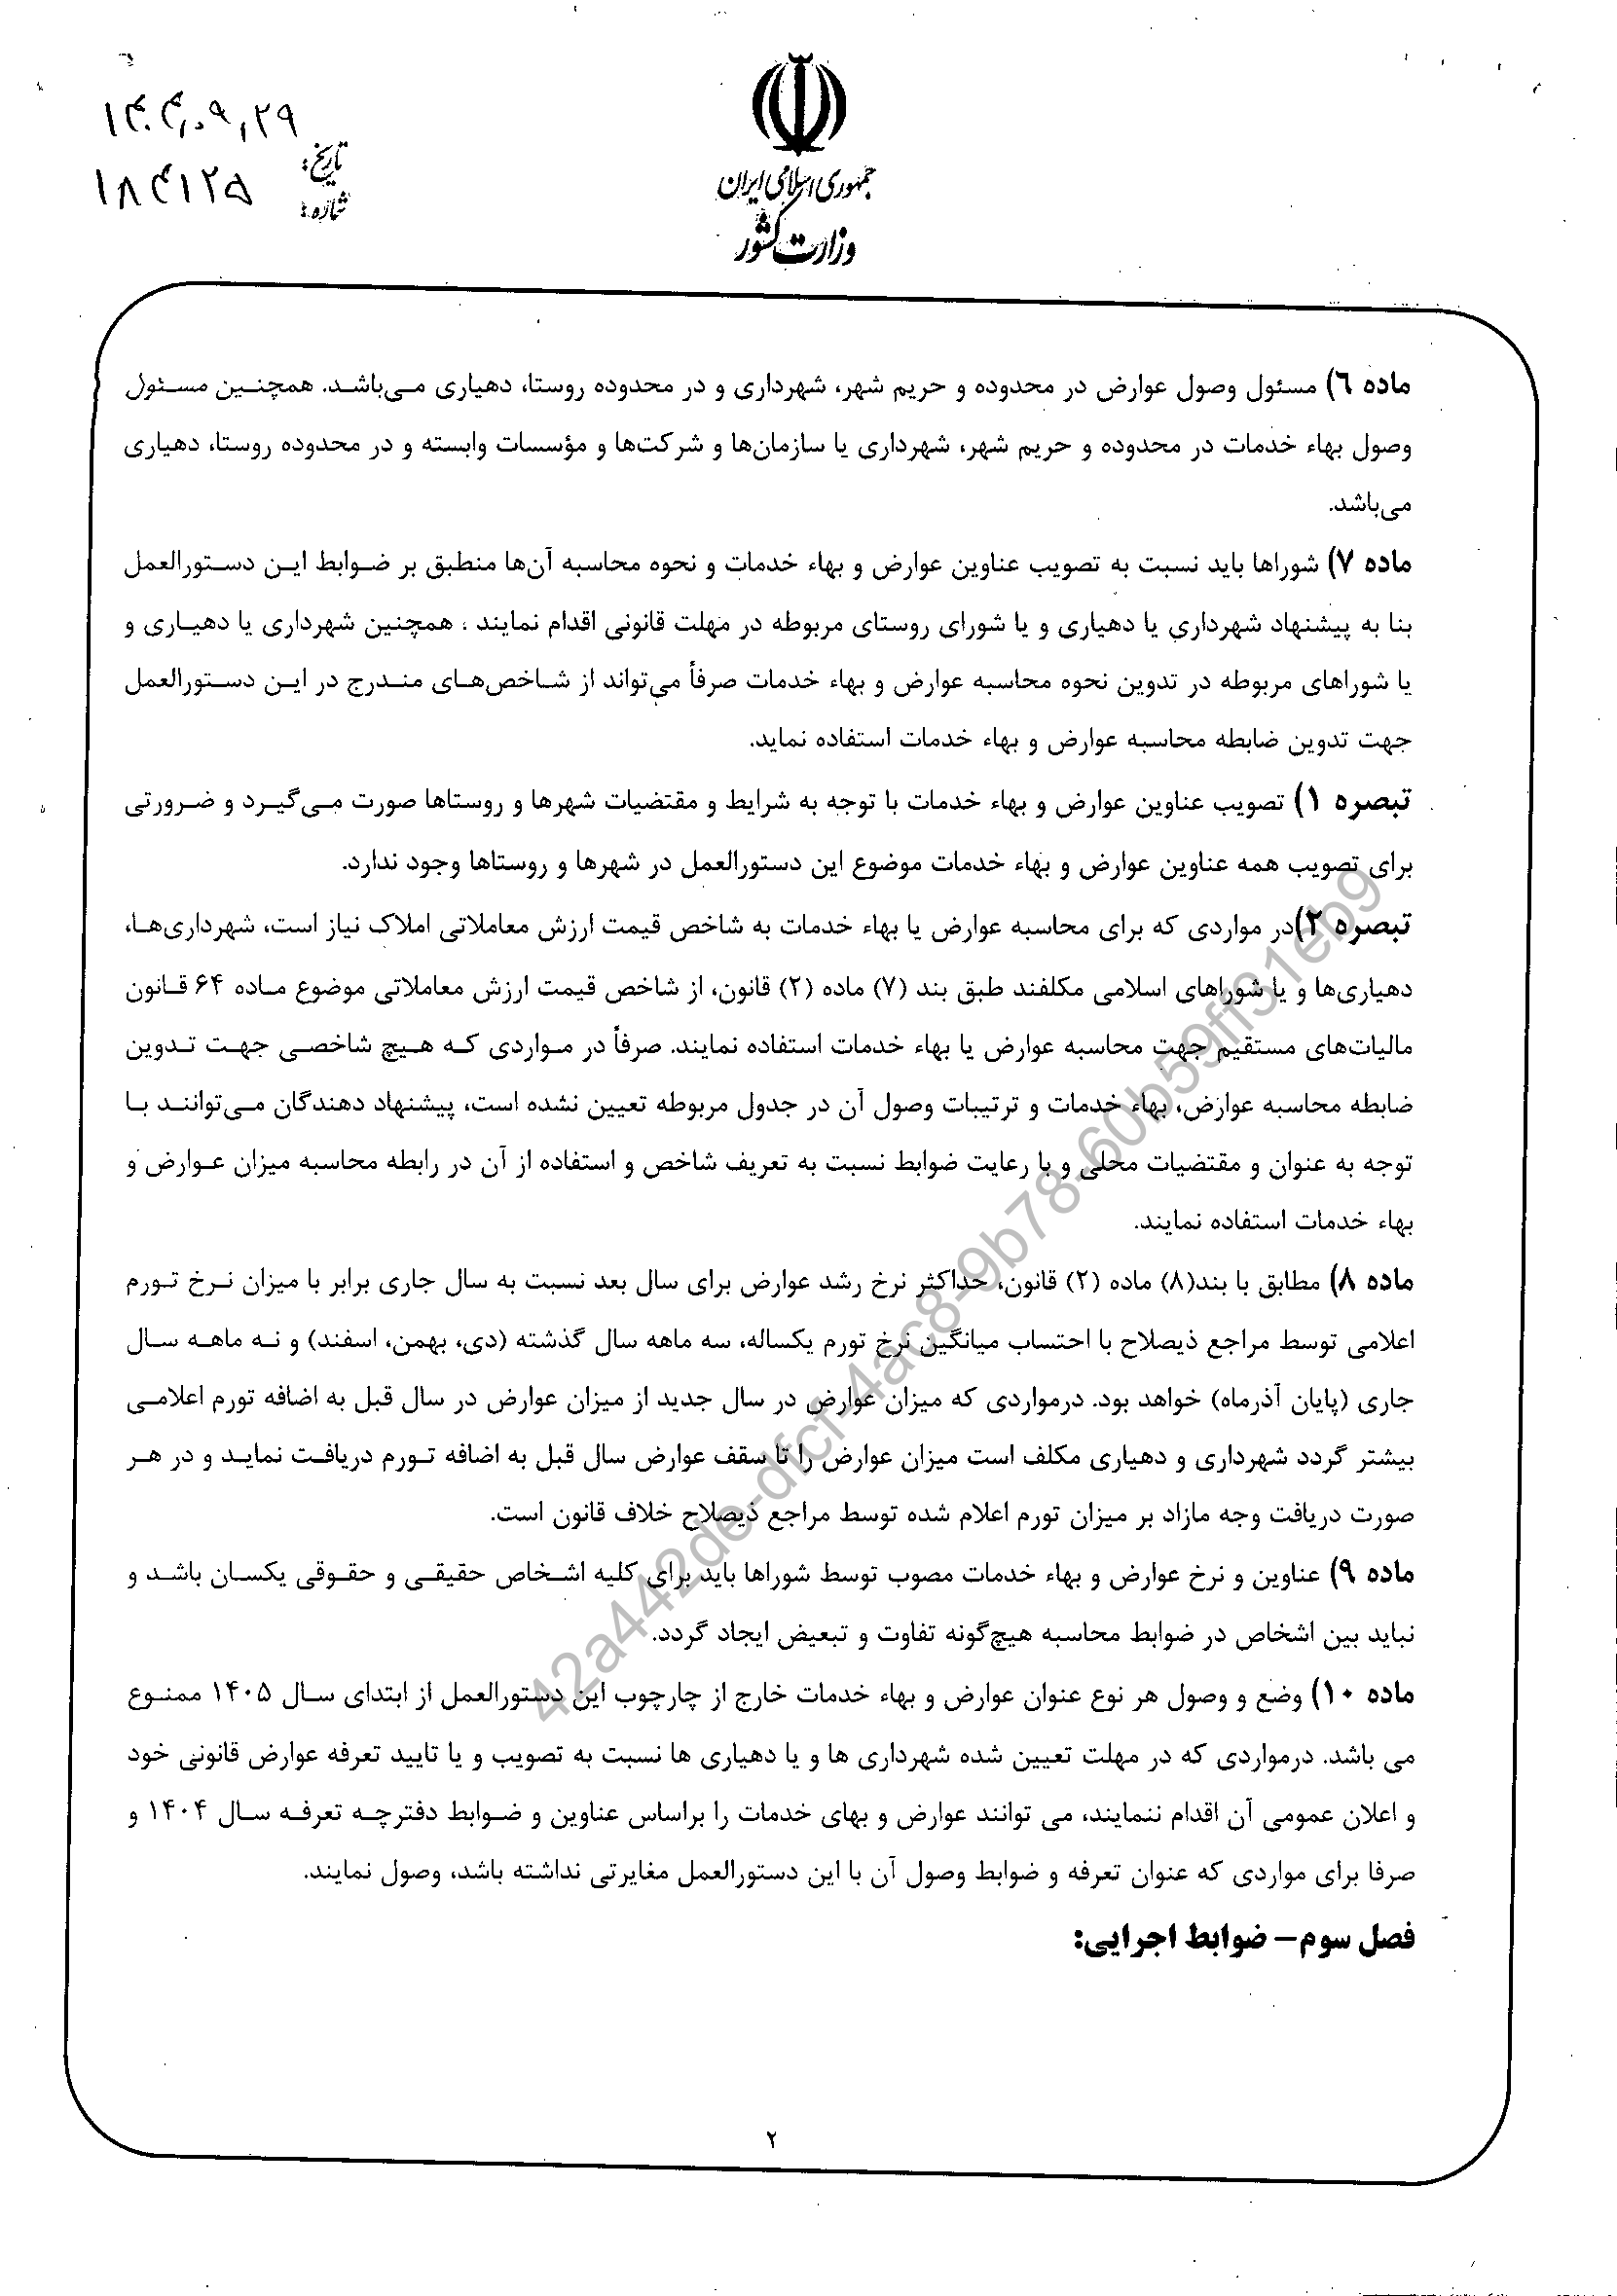 ۱۴۰۴٫۰۹٫۲۹
تاریخ:
۱۸۴۱۲۵
شماره:
جمهوری اسلامی ایران
وزارت کشور
ماده ۶) مسئول وصول عوارض در محدوده و حریم شهر، شهرداری و در محدوده روستا، دهیاری می‌باشد. همچنین مسئول
وصول بهاء خدمات در محدوده و حریم شهر، شهرداری یا سازمان‌ها و شرکت‌ها و مؤسسات وابسته و در محدوده روستا، دهیاری
می‌باشد.
ماده ۷) شوراها باید نسبت به تصویب عناوین عوارض و بهاء خدمات و نحوه محاسبه آن‌ها منطبق بر ضوابط این دستورالعمل
بنا به پیشنهاد شهرداری یا دهیاری و یا شورای روستای مربوطه در مهلت قانونی اقدام نمایند . همچنین شهرداری یا دهیاری و
یا شوراهای مربوطه در تدوین نحوه محاسبه عوارض و بهاء خدمات صرفأ می‌تواند از شاخص‌های مندرج در این دستورالعمل
جهت تدوین ضابطه محاسبه عوارض و بهاء خدمات استفاده نماید.
تبصره ۱) تصویب عناوین عوارض و بهاء خدمات با توجه به شرایط و مقتضیات شهرها و روستاها صورت می‌گیرد و ضرورتی
برای تصویب همه عناوین عوارض و بهاء خدمات موضوع این دستورالعمل در شهرها و روستاها وجود ندارد.
تبصره ۲)در مواردی که برای محاسبه عوارض یا بهاء خدمات به شاخص قیمت ارزش معاملاتی املاک نیاز است، شهرداری‌ها،
دهیاری‌ها و یا شوراهای اسلامی مکلفند طبق بند (۷) ماده (۲) قانون، از شاخص قیمت ارزش معاملاتی موضوع ماده ۶۴ قانون
مالیات‌های مستقیم جهت محاسبه عوارض یا بهاء خدمات استفاده نمایند. صرفأ در مواردی که هیچ شاخصی جهت تدوین
ضابطه محاسبه عوارض، بهاء خدمات و ترتیبات وصول آن در جدول مربوطه تعیین نشده است، پیشنهاد دهندگان می‌توانند با
توجه به عنوان و مقتضیات محلی و با رعایت ضوابط نسبت به تعریف شاخص و استفاده از آن در رابطه محاسبه میزان عوارض و
بهاء خدمات استفاده نمایند.
ماده ۸) مطابق با بند(۸) ماده (۲) قانون، حداکثر نرخ رشد عوارض برای سال بعد نسبت به سال جاری برابر با میزان نرخ تورم
اعلامی توسط مراجع ذیصلاح با احتساب میانگین نرخ تورم یکساله، سه ماهه سال گذشته (دی، بهمن، اسفند) و نه ماهه سال
جاری (پایان آذرماه) خواهد بود. درمواردی که میزان عوارض در سال جدید از میزان عوارض در سال قبل به اضافه تورم اعلامی
بیشتر گردد شهرداری و دهیاری مکلف است میزان عوارض را تا سقف عوارض سال قبل به اضافه تورم دریافت نماید و در هر
صورت دریافت وجه مازاد بر میزان تورم اعلام شده توسط مراجع ذیصلاح خلاف قانون است.
ماده ۹) عناوین و نرخ عوارض و بهاء خدمات مصوب توسط شوراها باید برای کلیه اشخاص حقیقی و حقوقی یکسان باشد و
نباید بین اشخاص در ضوابط محاسبه هیچ‌گونه تفاوت و تبعیض ایجاد گردد.
ماده ۱۰) وضع و وصول هر نوع عنوان عوارض و بهاء خدمات خارج از چارچوب این دستورالعمل از ابتدای سال ۱۴۰۵ ممنوع
می باشد. درمواردی که در مهلت تعیین شده شهرداری ها و یا دهیاری ها نسبت به تصویب و یا تایید تعرفه عوارض قانونی خود
و اعلان عمومی آن اقدام ننمایند، می توانند عوارض و بهای خدمات را براساس عناوین و ضوابط دفترچه تعرفه سال ۱۴۰۴ و
صرفا برای مواردی که عنوان تعرفه و ضوابط وصول آن با این دستورالعمل مغایرتی نداشته باشد، وصول نمایند.
فصل سوم– ضوابط اجرایی:
۲
42a442de-dfcf-4ac8-9b78-60b59ff31eb9